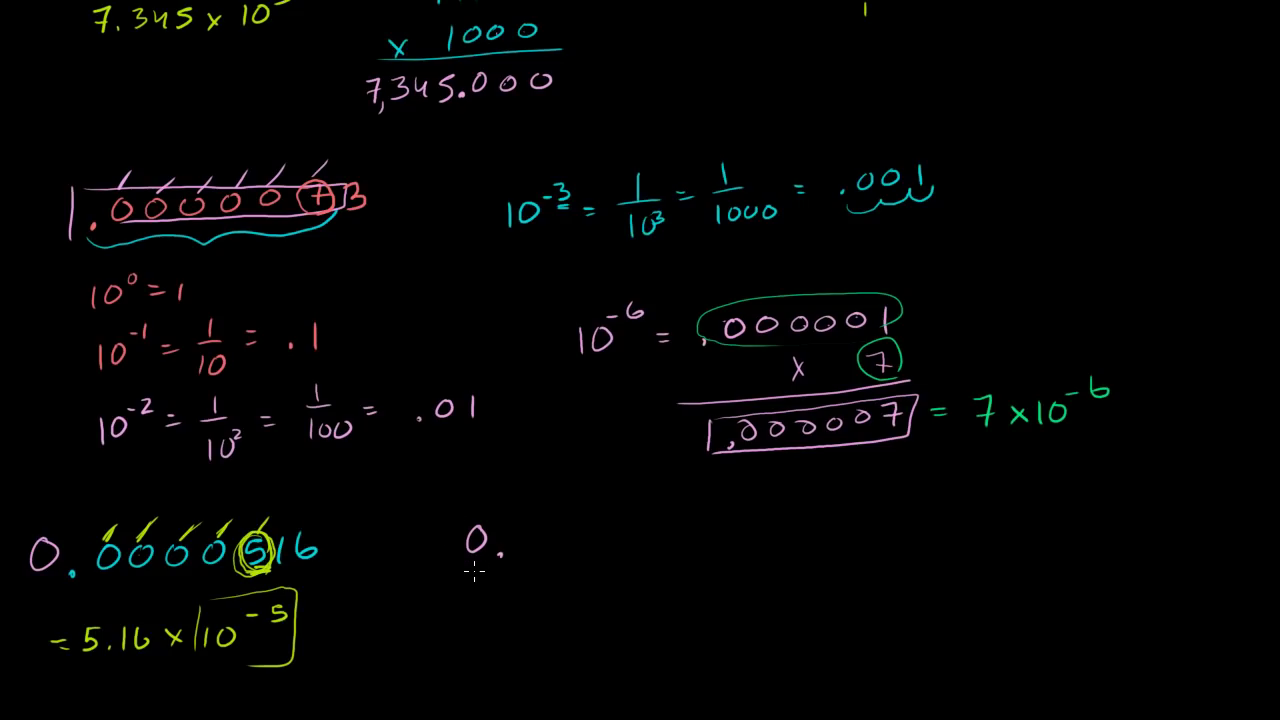 7.345 x 10
x 1000
7,345.000
.0000073
10^-3 = 1/10^3 = 1/1000 = .001
10^0 = 1
10^-1 = 1/10 = .1
10^-2 = 1/10^2 = 1/100 = .01
10^-6 = .000001
x 7
.000007 = 7 x 10^-6
0.0000516
= 5.16 x 10^-5
0.